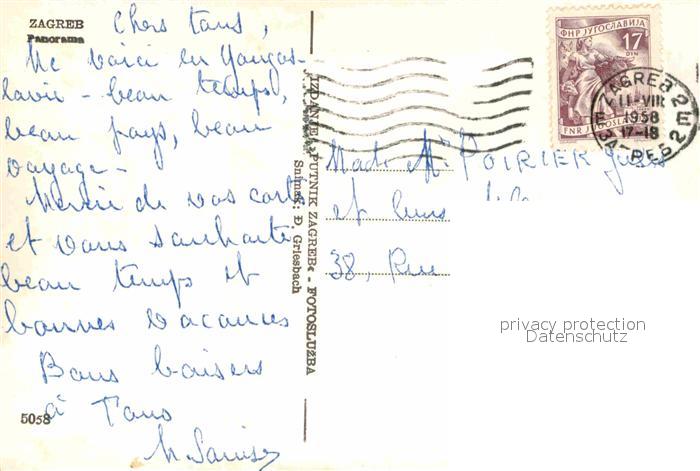 ZAGREB
Panorama
Chers tous,
Me voici en Yougos-
lavie - beau temps,
beau pays, beau
voyage -
Merci de vos cartes
et vous souhaite
beau temps et
bonnes vacances
Bons baisers
à Tous
5058
IZDANJE »PUTNIK ZAGREB« - FOTOSLUŽBA
Snimak: Đ. Griesbach
ФНР ЈУГОСЛАВИЈА
17
DIN
FNR JUGOSLAVIJA
ZAGREB 2
11-VIII
1958
17-18
ЗАГРЕБ 2
Made Mr POIRIER
et leurs
38, Rue
privacy protection
Datenschutz